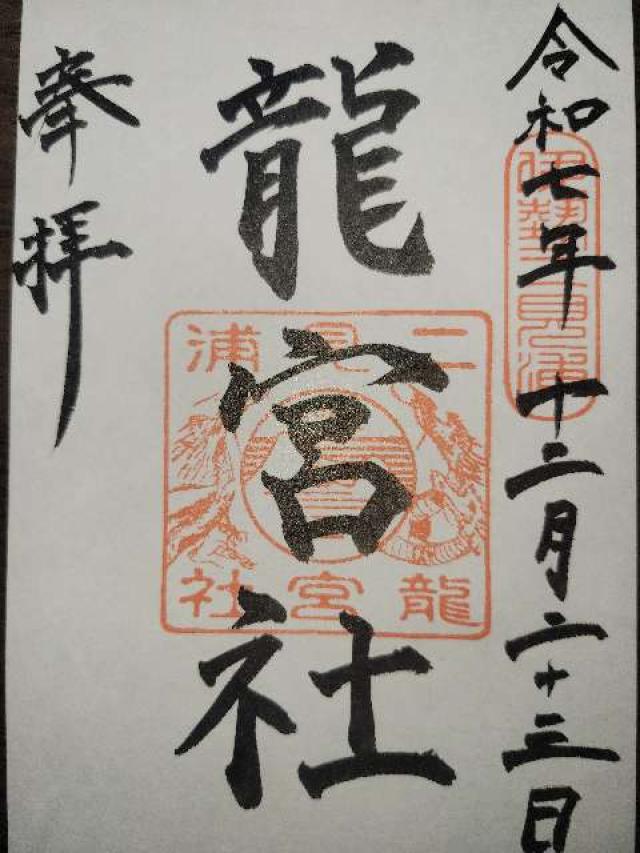 令和七年 十二月二十三日
伊勢二見浦
龍宮社
二見浦
龍宮社
奉拝